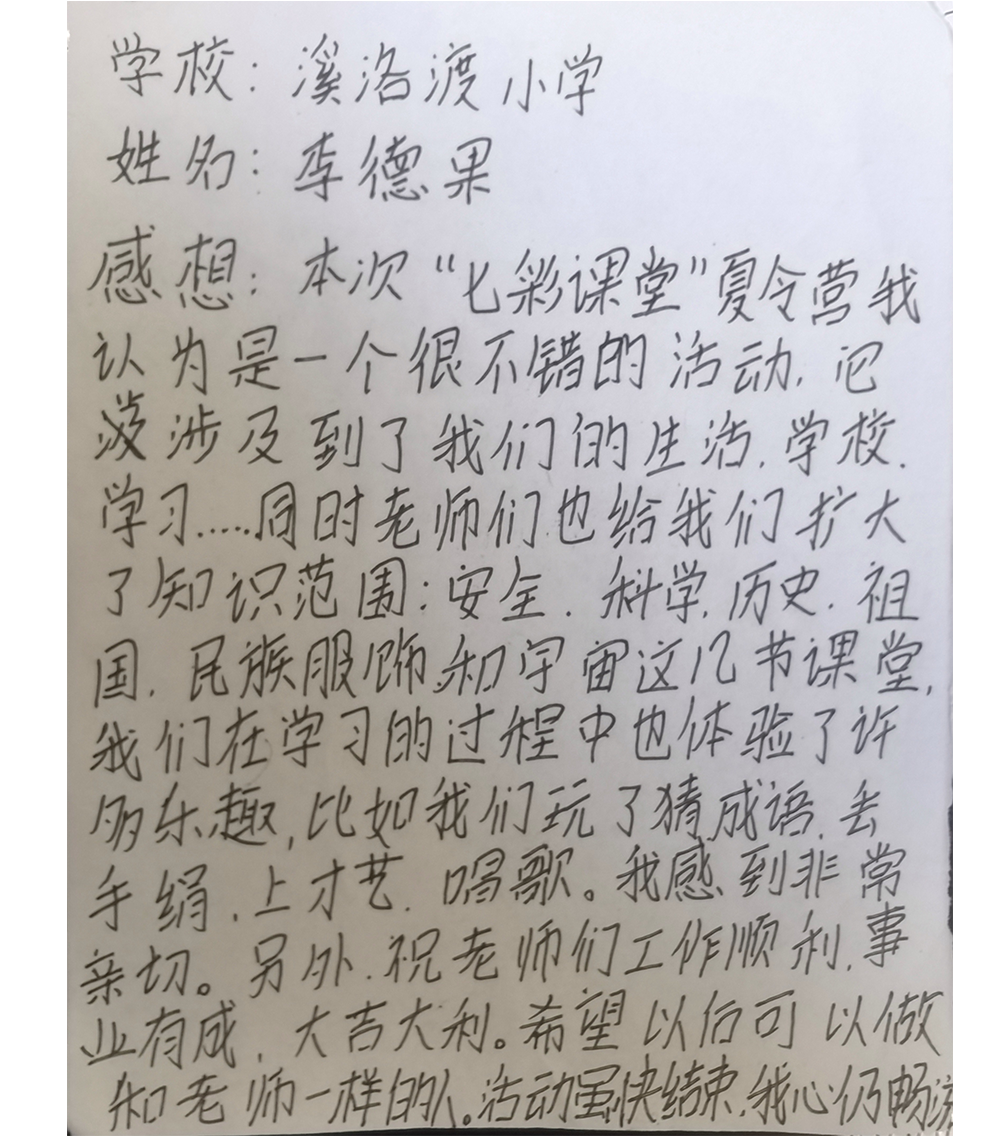 学校：溪洛渡小学
姓名：李德果
感想：本次“七彩课堂”夏令营我
认为是一个很不错的活动，它
涉及到了我们的生活、学校、
学习……同时老师们也给我们扩大
了知识范围：安全、科学、历史、祖
国、民族服饰和宇宙这几节课堂，
我们在学习的过程中也体验了许
多乐趣，比如我们玩了猜成语、丢
手绢、上才艺、唱歌。我感到非常
亲切。另外，祝老师们工作顺利，事
业有成，大吉大利。希望以后可以做
和老师一样的人。活动虽快结束，我心仍畅游